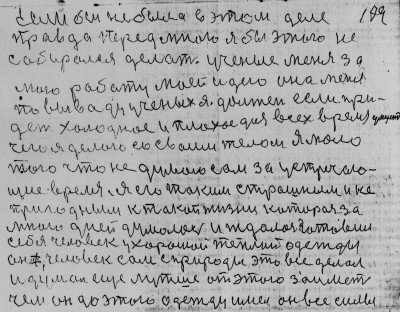 Если бы не была в этом деле 199
правда передмною я бы этого не
собирался делать учение меня за
мою работу моей идею она меня
то выва ду ученых я должен если при-
дет холодное и плохое для всех время
чего я делаю со своим телом Я мало
того что не думаю сам за устрачаю-
щие время. Я его таким страшным и не
пригодным к такой жизни которая за
много дней думалась и ждалася готовил
себя человек у хорошой теплый одежды
он человек сам с природы это все делал
и думал еще лутше от этого займет
чем он до этого одежду имел он все силы